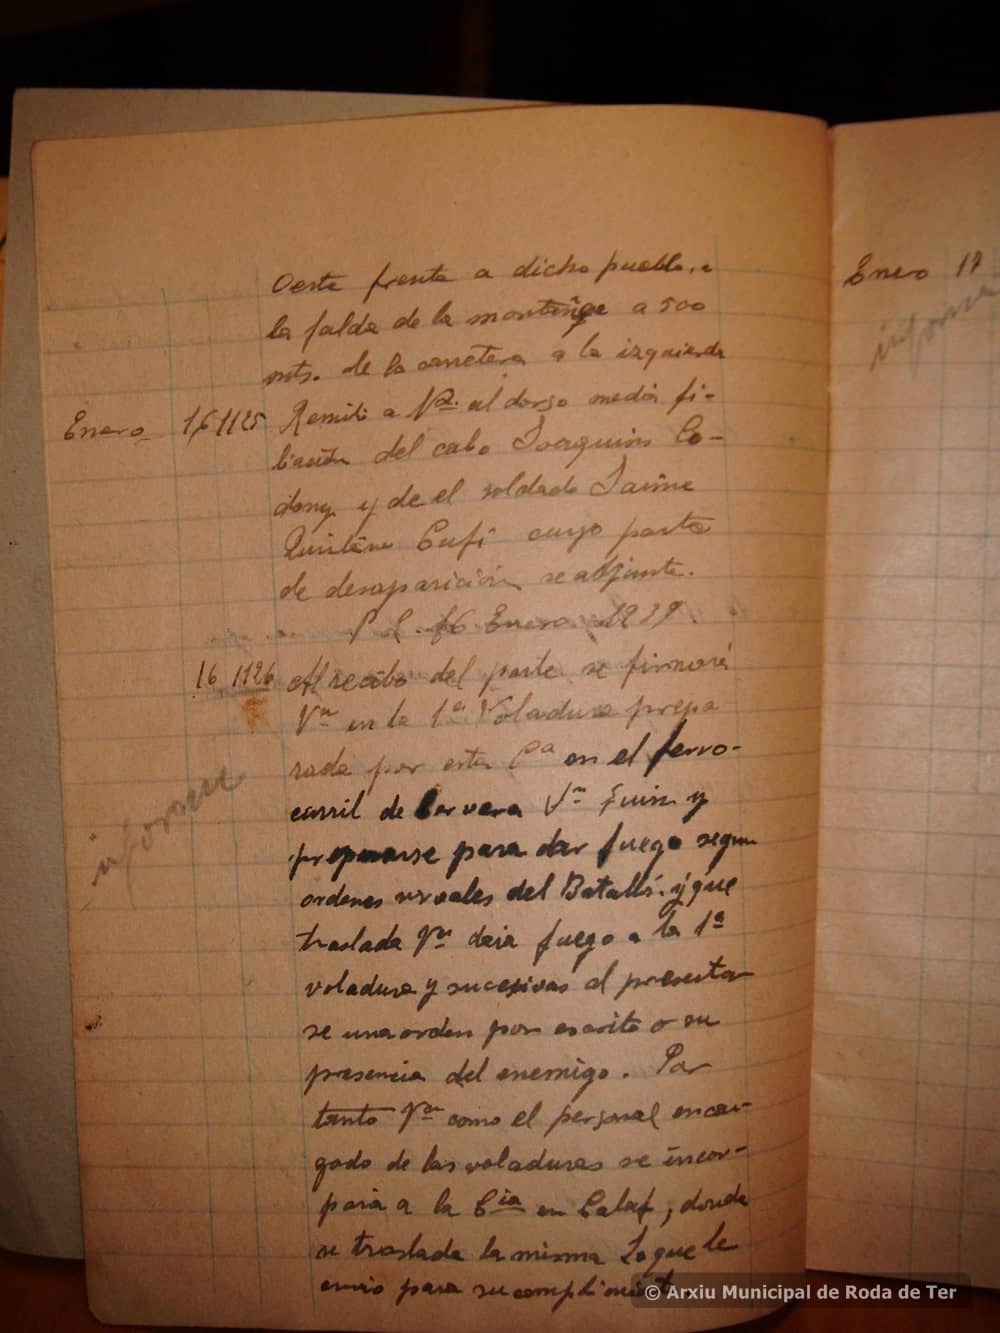 Oeste frente a dicho pueblo, a
la falda de la montaña a 500
mts. de la carretera a la izquierda
Enero 16 1125 Remiti a Vd. al dorso media fi-
liación del cabo Joaquin Co-
dony y de el soldado Jaime
Quintana Cufi cuyo parte
de desaparición se adjunta.
P. C. 16 Enero 1939
16 1126 Al recibo del parte se firmará
Vd. en la 1ª Voladura prepa-
rada por esta Cª en el ferro-
carril de Cervera
prepararse para dar fuego segun
informe
ordenes del Batalló. y que
traslada Vd. daria fuego a la 1ª
voladura y sucesivas al presentar
se una orden por escrito o su
presencia del enemigo. Por
tanto Vd. como el personal encar-
gado de las voladuras se incor-
pora a la Cia en Calaf, donde
se traslada la misma Lo que le
envio para su cumplimient
Enero 17
informe
© Arxiu Municipal de Roda de Ter